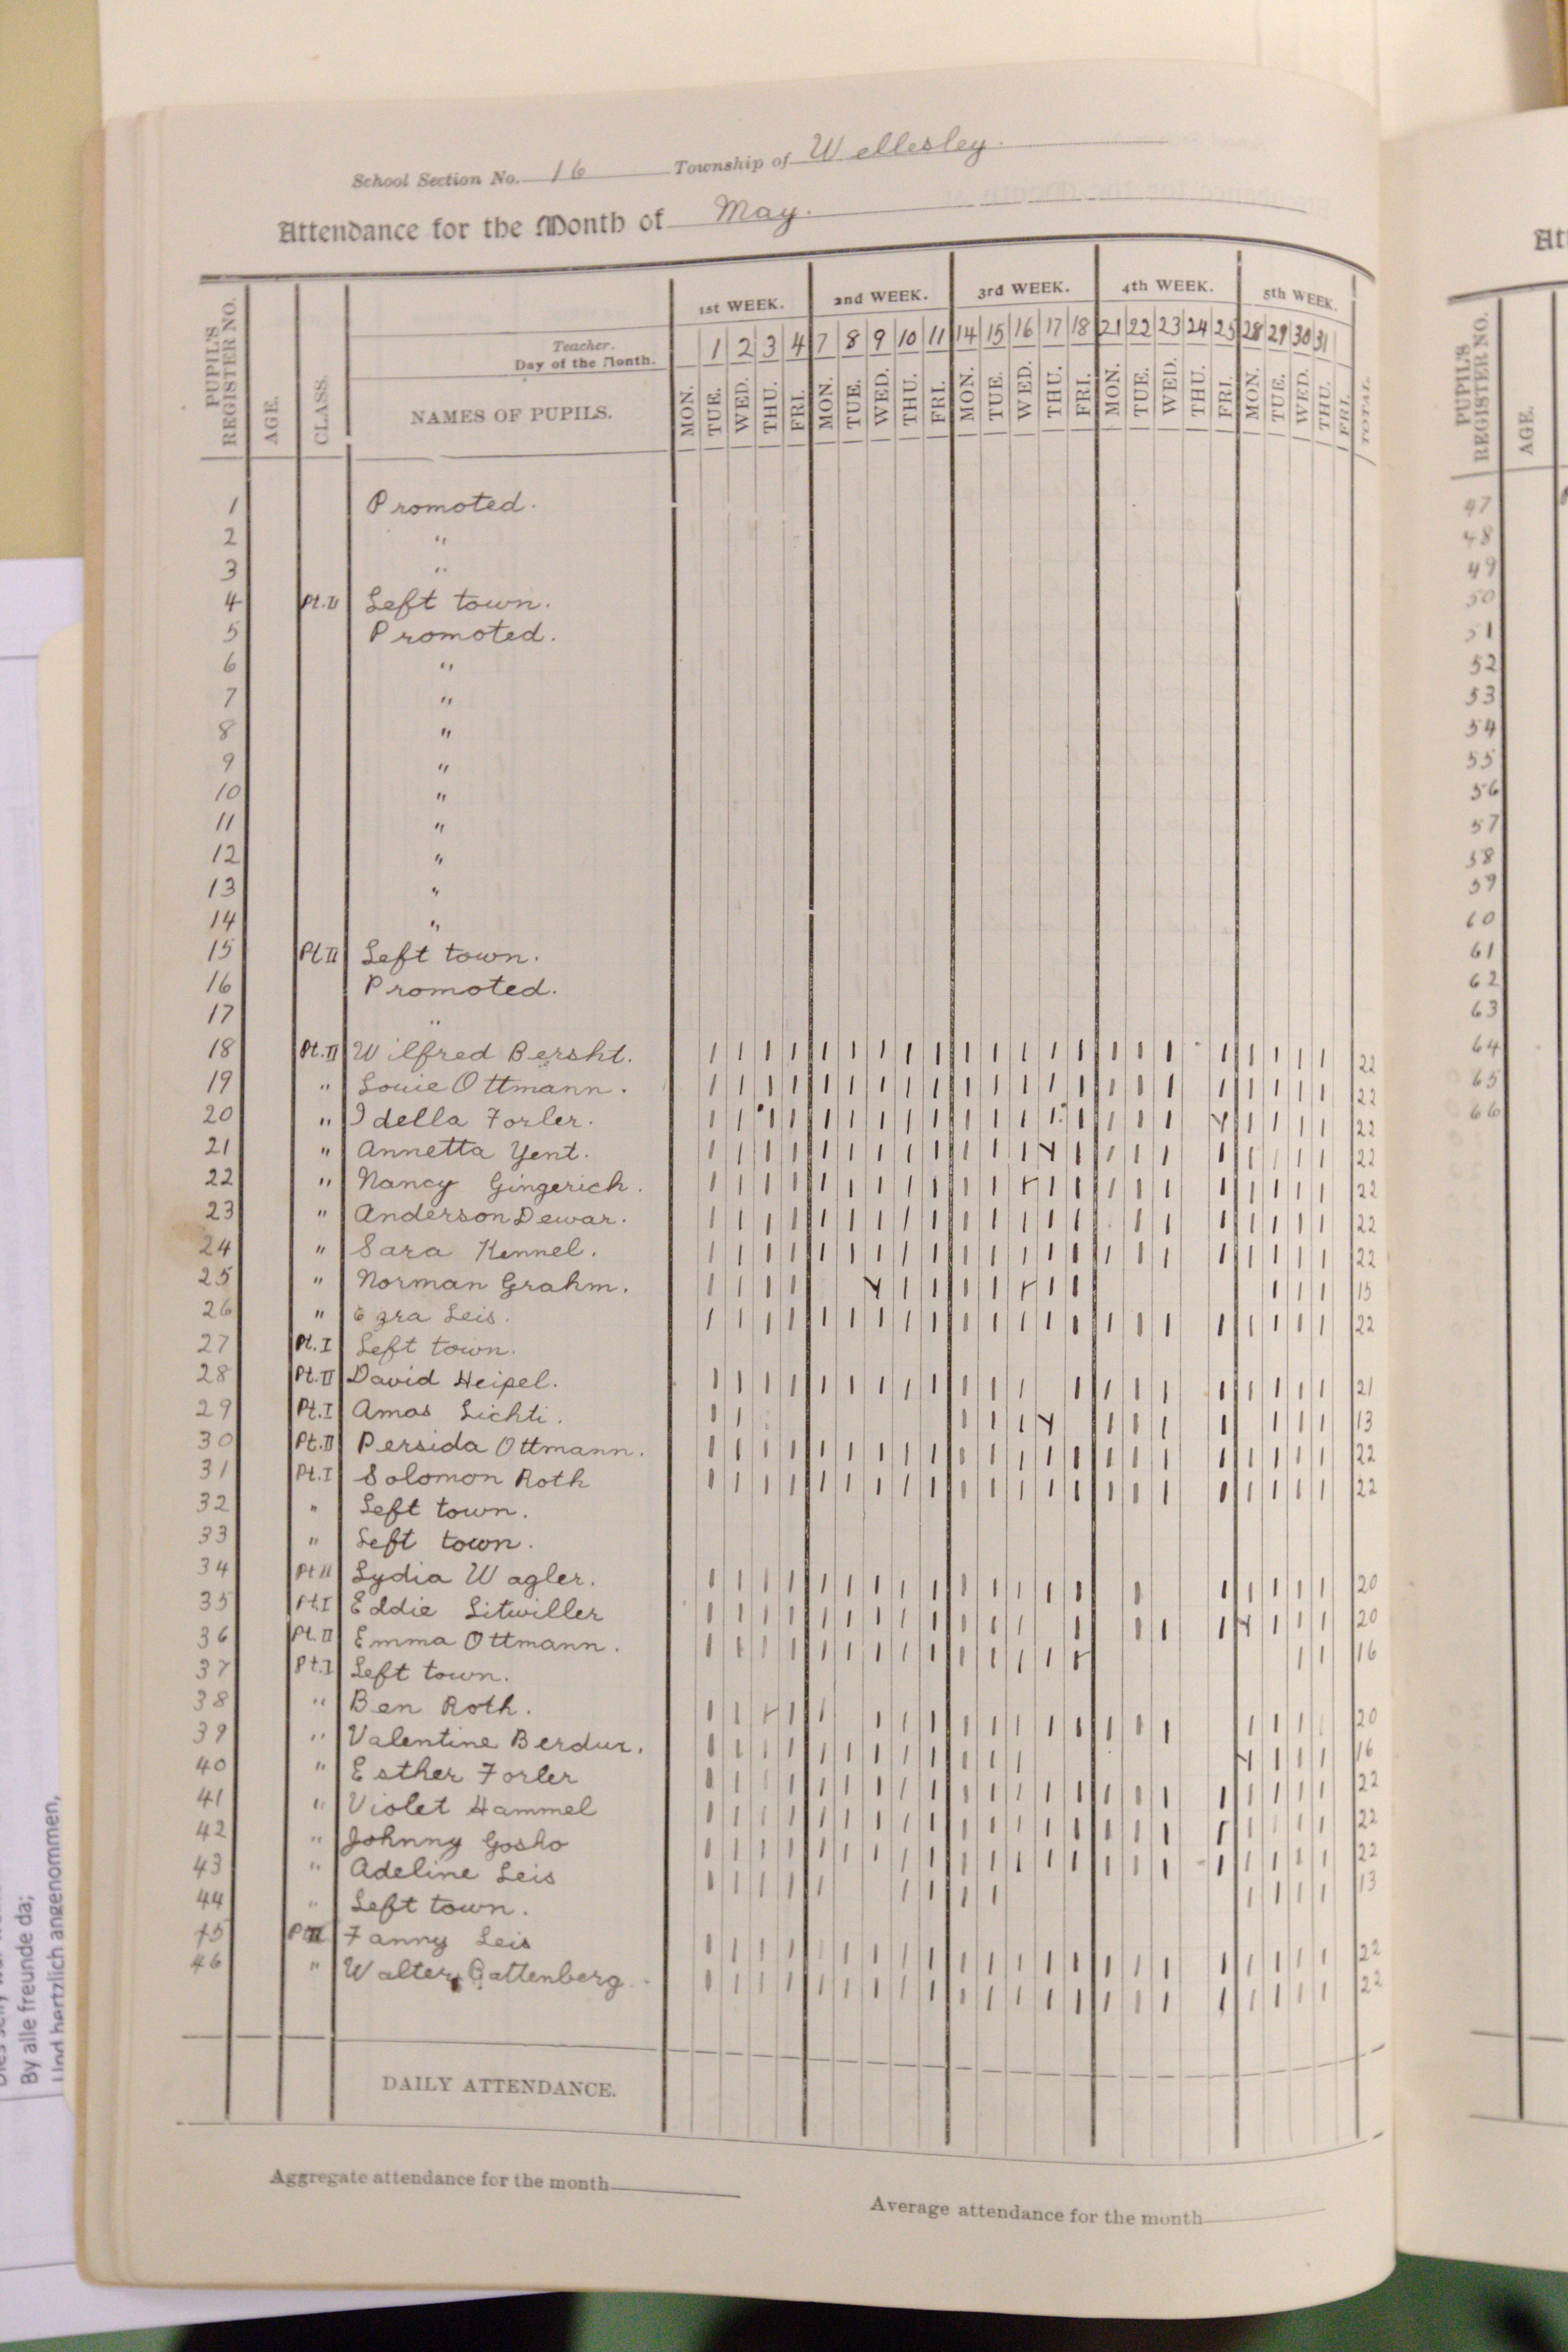 School Section No. 16 Township of Wellesley.
Attendance for the Month of May.
PUPIL'S REGISTER NO. AGE. CLASS. 1st WEEK. 2nd WEEK. 3rd WEEK. 4th WEEK. 5th WEEK.
Teacher.
Day of the Month. 1 2 3 4 7 8 9 10 11 14 15 16 17 18 21 22 23 24 25 28 29 30 31
NAMES OF PUPILS. MON. TUE. WED. THU. FRI. MON. TUE. WED. THU. FRI. MON. TUE. WED. THU. FRI. MON. TUE. WED. THU. FRI. MON. TUE. WED. THU. FRI. TOTAL.
1 Promoted.
2 "
3 "
4 Pt.II Left town.
5 Promoted.
6 "
7 "
8 "
9 "
10 "
11 "
12 "
13 "
14 "
15 Pt II Left town.
16 Promoted.
17 "
18 Pt.II Wilfred Bersht. 22
19 " Louie Ottmann. 22
20 " Idella Forler. 22
21 " Annetta Yent. 22
22 " Nancy Gingerich. 22
23 " Anderson Dewar. 22
24 " Sara Kennel. 22
25 " Norman Grahm. 15
26 " Ezra Leis. 22
27 Pt.I Left town.
28 Pt.II David Heipel. 21
29 Pt.I Amos Lichti. 13
30 Pt.II Persida Ottmann. 22
31 Pt.I Solomon Roth 22
32 " Left town.
33 " Left town.
34 Pt II Lydia Wagler. 20
35 Pt.I Eddie Litwiller 20
36 Pt.II Emma Ottmann. 16
37 Pt.I Left town.
38 " Ben Roth. 20
39 " Valentine Berdux. 16
40 " Esther Forler 22
41 " Violet Hammel 22
42 " Johnny Gosho 22
43 " Adeline Leis 13
44 " Left town.
45 Pt II Fanny Leis 22
46 " Walter Gattenberg. 22
DAILY ATTENDANCE.
Aggregate attendance for the month
Average attendance for the month
By alle freunde da;
Und hertzlich angenommen,
Att
PUPIL'S REGISTER NO. AGE.
47
48
49
50
51
52
53
54
55
56
57
58
59
60
61
62
63
64
65
66